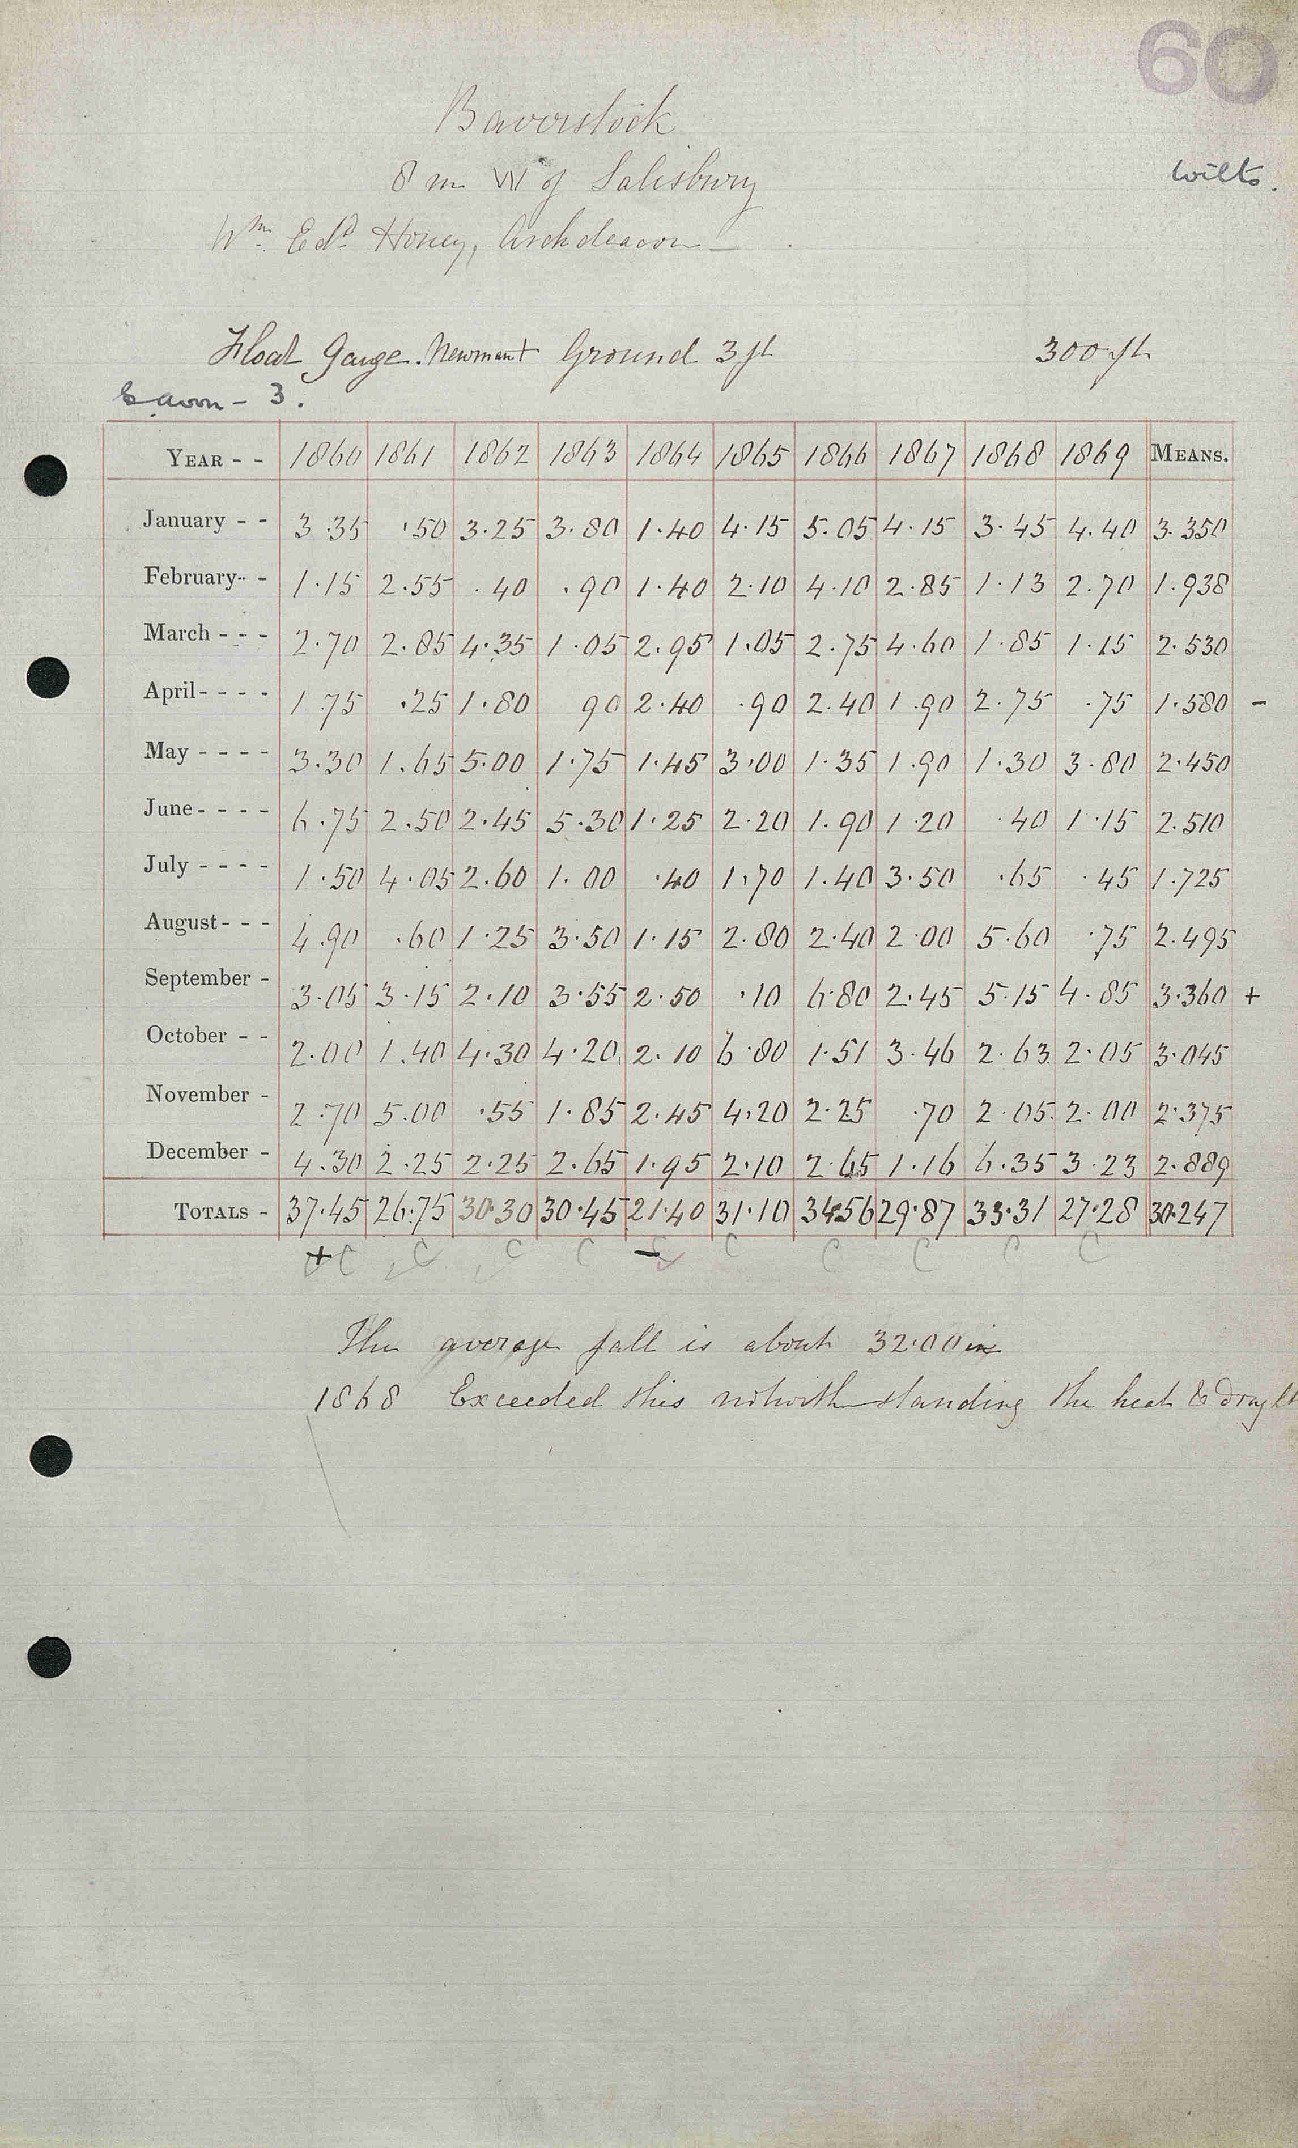 60
Baverstock
Wilts.
8 m W of Salisbury
Wm. Edd. Honey, Archdeacon
Float Gauge. Newman's Ground 3 ft 300 ft
E. Avon - 3.
YEAR - - 1860 1861 1862 1863 1864 1865 1866 1867 1868 1869 MEANS.
January - - 3.35 .50 3.25 3.80 1.40 4.15 5.05 4.15 3.45 4.40 3.350
February - - 1.15 2.55 .40 .90 1.40 2.10 4.10 2.85 1.13 2.70 1.938
March - - - 2.70 2.85 4.35 1.05 2.95 1.05 2.75 4.60 1.85 1.15 2.530
April - - - - 1.75 .25 1.80 90 2.40 .90 2.40 1.90 2.75 .75 1.580 -
May - - - - 3.30 1.65 5.00 1.75 1.45 3.00 1.35 1.90 1.30 3.80 2.450
June - - - - 6.75 2.50 2.45 5.30 1.25 2.20 1.90 1.20 .40 1.15 2.510
July - - - - 1.50 4.05 2.60 1.00 .40 1.70 1.40 3.50 .65 .45 1.725
August - - - 4.90 .60 1.25 3.50 1.15 2.80 2.40 2.00 5.60 .75 2.495
September - 3.05 3.15 2.10 3.55 2.50 .10 6.80 2.45 5.15 4.85 3.360 +
October - - 2.00 1.40 4.30 4.20 2.10 6.80 1.51 3.46 2.63 2.05 3.045
November - 2.70 5.00 .55 1.85 2.45 4.20 2.25 .70 2.05 2.00 2.375
December - 4.30 2.25 2.25 2.65 1.95 2.10 2.65 1.16 6.35 3.23 2.889
TOTALS - 37.45 26.75 30.30 30.45 21.40 31.10 34.56 29.87 33.31 27.28 30.247
+ C C C C - C C C C C
The average fall is about 32.00 in
1868 Exceeded this notwithstanding the heat &